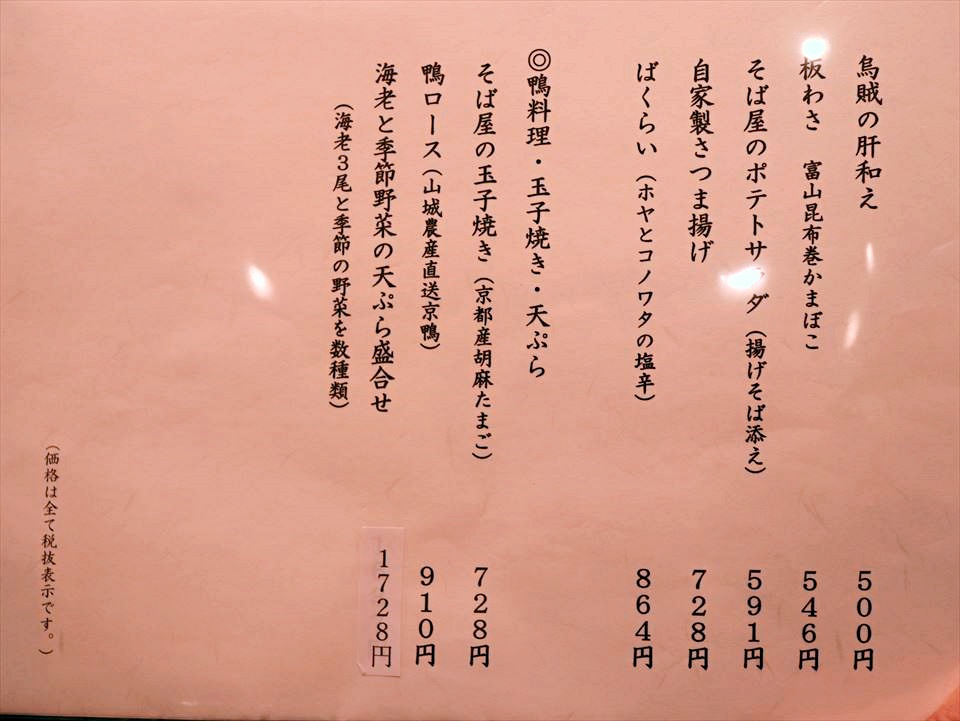 烏賊の肝和え 500円
板わさ 富山昆布巻かまぼこ 546円
そば屋のポテトサラダ(揚げそば添え) 591円
自家製さつま揚げ 728円
ばくらい(ホヤとコノワタの塩辛) 864円
◎鴨料理・玉子焼き・天ぷら
そば屋の玉子焼き(京都産胡麻たまご) 728円
鴨ロース(山城農産直送京鴨) 910円
海老と季節野菜の天ぷら盛合せ 1728円
(海老3尾と季節の野菜を数種類)
(価格は全て税抜表示です。)